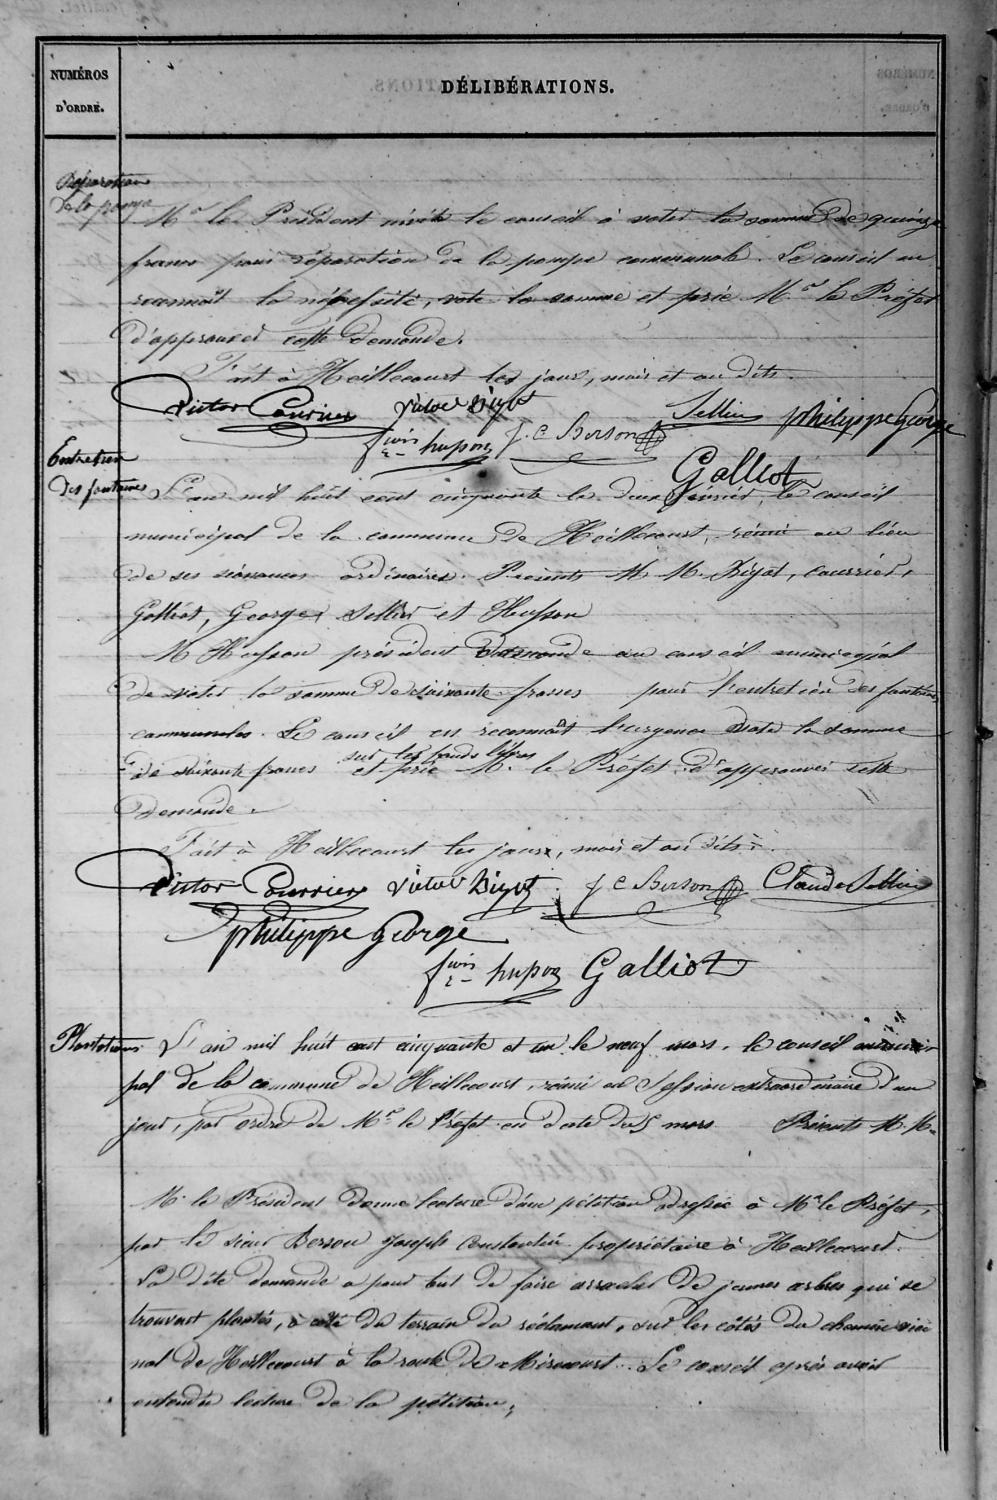 NUMÉROS
D'ORDRE.
DÉLIBÉRATIONS.
Réparation
de la pompe
Mr le Président invite le conseil à voter la somme de quinze
francs pour réparation de la pompe communale. Le conseil en
reconnaît la nécessité, vote la somme et prie Mr le Préfet
d'approuver cette demande.
Fait à Heillecourt les jour, mois et an dits.
Victor Courrier Victor Bigot Sellier philippe George
fcois husson J. C Berson
Galliot
Entretien
des fontaines
L'an mil huit cent cinquante le deux février, le conseil
municipal de la commune de Heillecourt, réuni au lieu
de ses séances ordinaires. Présents M. M. Bigot, Courrier,
Galliot, George, Sellier et Husson
M Husson président demande au conseil municipal
de voter la somme de soixante francs pour l'entretien des fontaines
communales. Le conseil en reconnaît l'urgence vote la somme
de soixante francs sur les fonds libres et prie M. le Préfet d'approuver cette
demande.
Fait à Heillecourt les jour, mois et an dits.
Victor Courrier Victor Bigot J C Berson Claude Sellier
philippe George
fcois husson Galliot
Plantations
L'an mil huit cent cinquante et un le neuf mars, le conseil munici-
pal de la commune de Heillecourt, réuni en session extraordinaire d'un
jour, par ordre de Mr le Préfet en date du 5 mars Présents M. M.
M. le Président donne lecture d'une pétition adressée à Mr le Préfet,
par le sieur Berson Joseph Constantin propriétaire à Heillecourt.
La dite demande a pour but de faire arracher de jeunes arbres qui se
trouvent plantés, à côté du terrain du réclamant, sur les côtés du chemin vici
nal de Heillecourt à la route de Mirecourt. Le conseil après avoir
entendu lecture de la pétition,